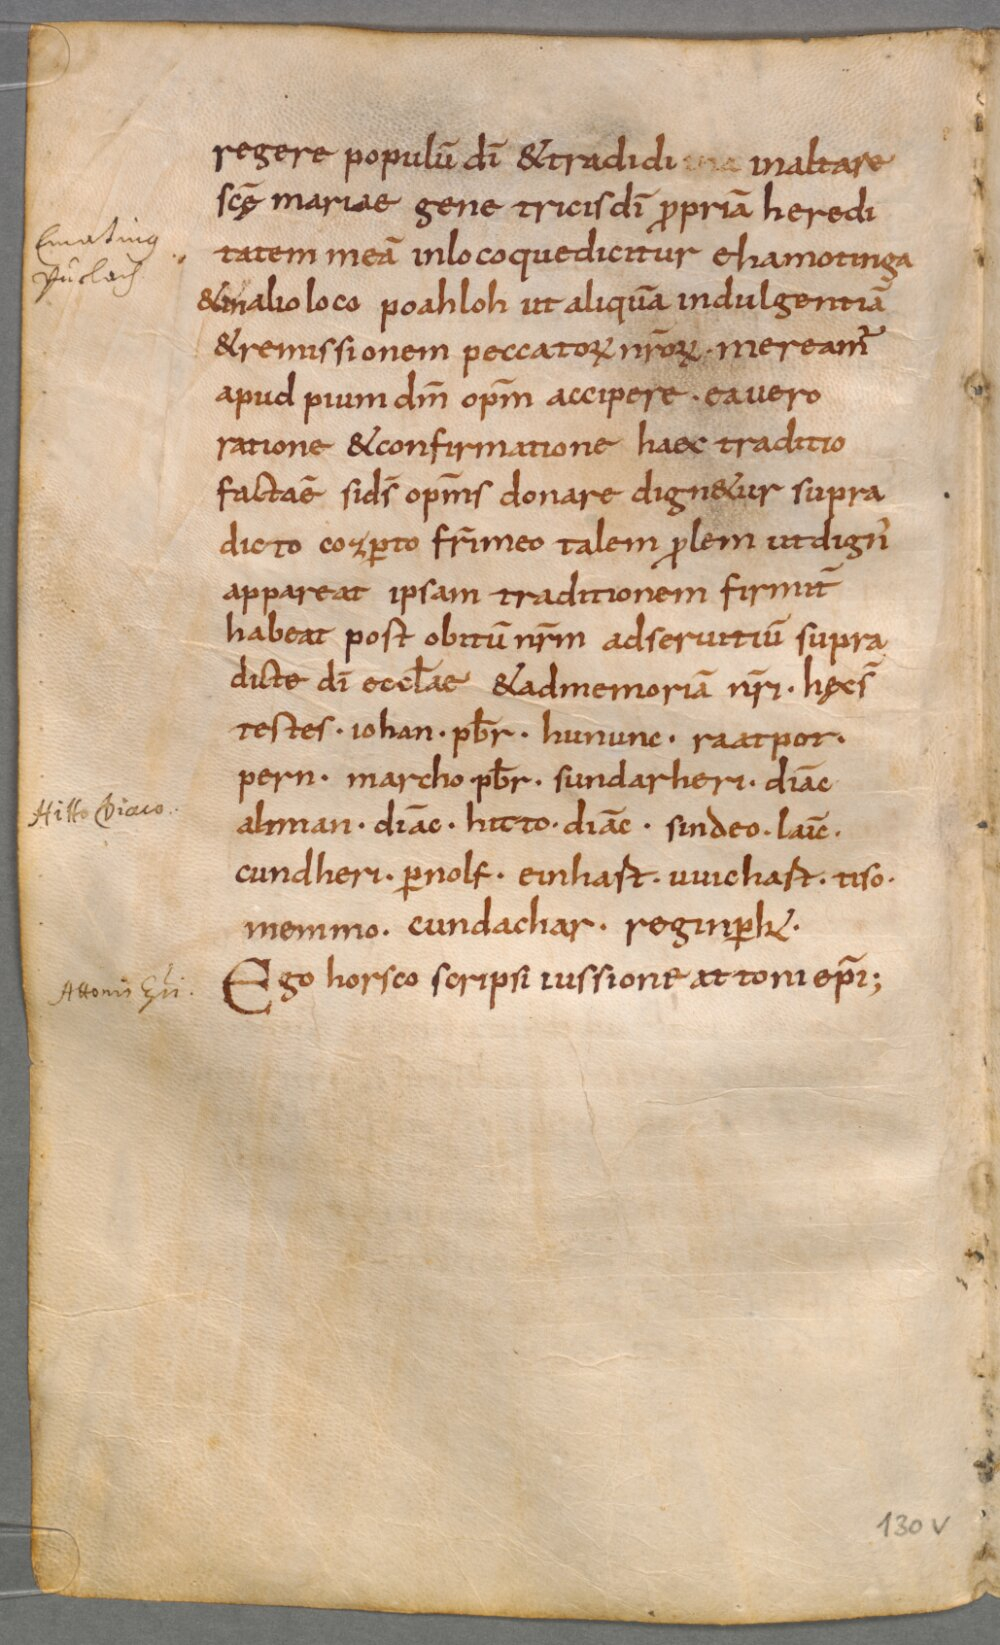 regere populū dī &tradidi inaltare
scę̄ mariae gene tricis dī ꝓpriā heredi
Emating
tatem meā inlocoquedicitur ehamotinga
Púclach
&inalioloco poahloh ut aliquā indulgentiā
&remissionem peccatoꝝ nr̄oꝝ · mereamr̄
apud pium dm̄ opm̄ accipere · eauero
ratione &confirmatione haec traditio
factaē sids̄ opm̄s donare dign&ur supra
dicto coꝫꝑto fr̄imeo talem ꝓlem utdign̄
appareat ipsam traditionem firmit̄
habeat post obitū nr̄m adseruitiū supra
dicte dī eccƚae &admemoriā nr̄i · hęcs̄
testes · iohan · pƀr · hununc · raatpot ·
pern · marcho · pƀr · sundarheri · diāc
Hitto Diaco.
alman · diāc · hitto · diāc · sindeo · laīc ·
cundheri · ꝑnolf · einhast · uuichast · tiso ·
memmo · cundachar · reginꝑht ·
Attonis Epi.
Ego horsco scripsi iussione attoni ep̄i;
130 v